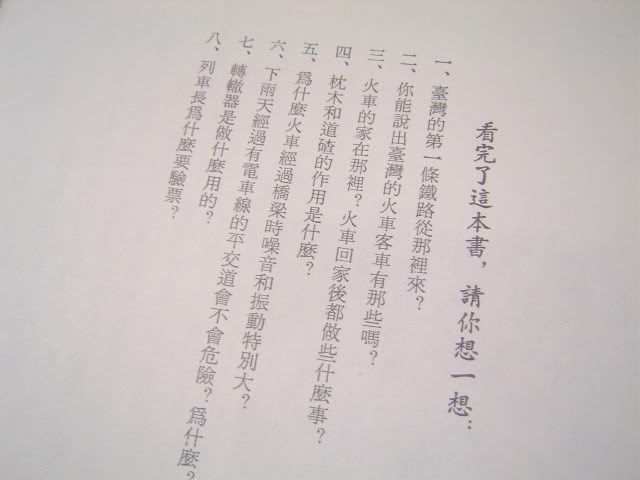 看完了這本書，請你想一想：
一、臺灣的第一條鐵路從那裡來？
二、你能說出臺灣的火車客車有那些嗎？
三、火車的家在那裡？火車回家後都做些什麼事？
四、枕木和道碴的作用是什麼？
五、爲什麼火車經過橋梁時噪音和振動特別大？
六、下雨天經過有電車線的平交道會不會危險？爲什麼？
七、轉轍器是做什麼用的？
八、列車長爲什麼要驗票？